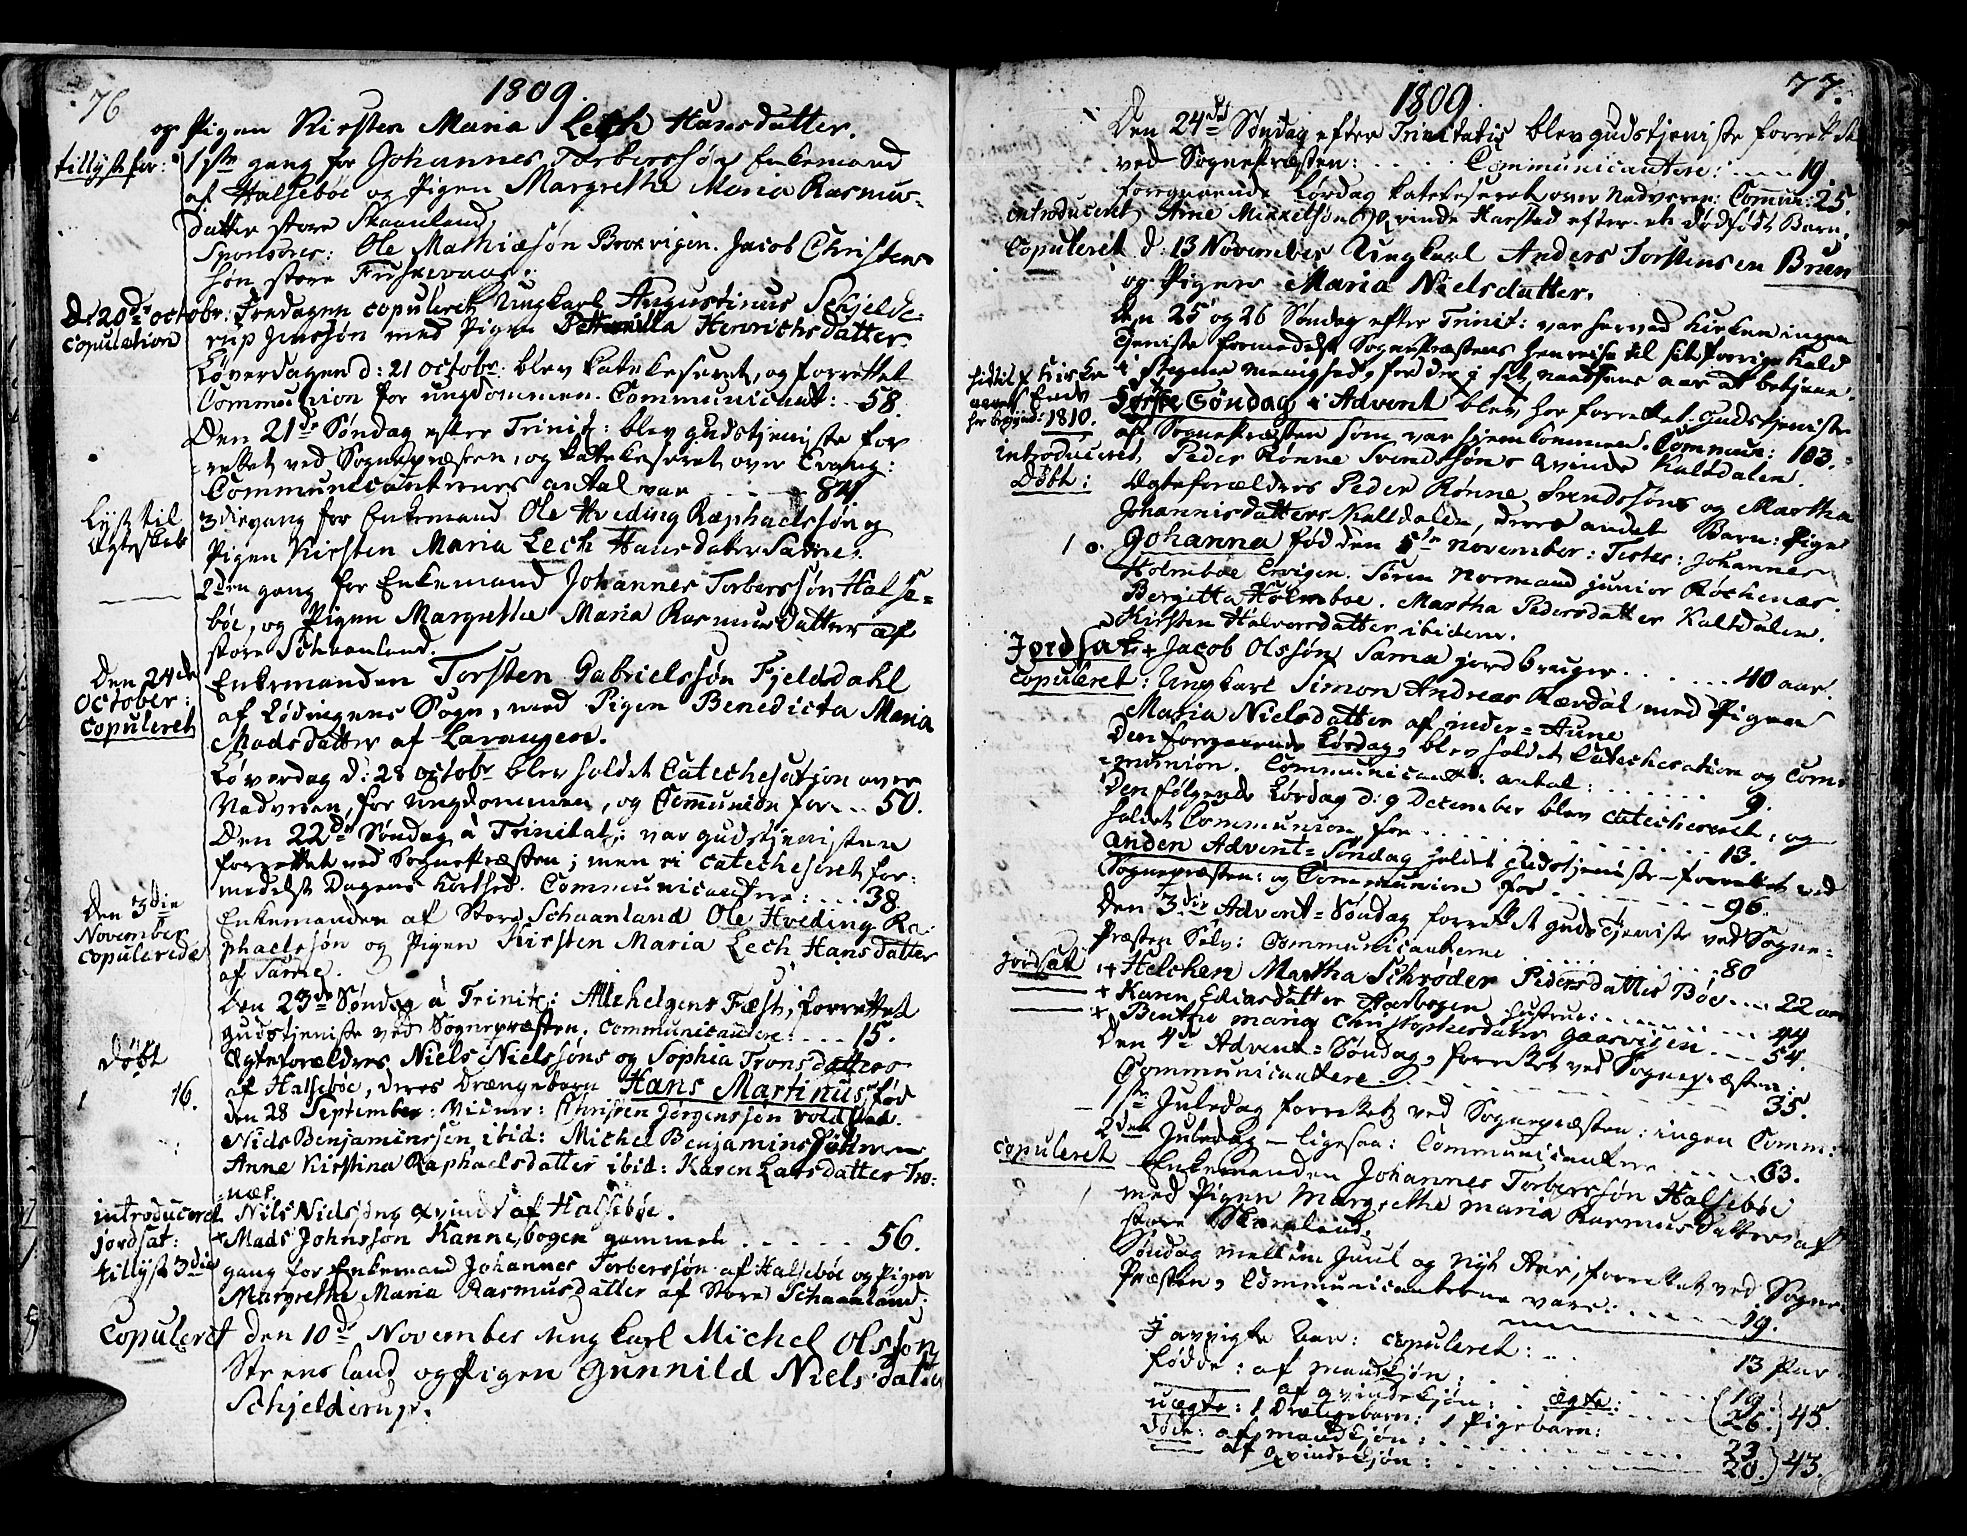 76
1809.
og Pigen Kirsten Maria Lech Hansdatter.
tillyst for: 1ste gang for Johannes Torberssøn Enkemand
af Halsebøe og Pigen Margretha Maria Rasmus-
datter store Skaanland.
Sponsores: Ole Mathiæsøn Brokvigen. Jacob Christen-
søn store
D: 20de octobr: Fredagen copuleret Ungkarl Augustinus Schjelde-
copulation
rup Jenssøn med Pigen Petternilla Henrichsdatter
Løverdagen d: 21 octobr: blev katekeseret, og forrettet
Communion for ungdommen. Communicant: 58.
Den 21de Søndag efter Trinit: blev gudstjeniste for
rettet ved Sognepræsten, og katekeseret over Evang:
Communicanternes antal var - - - 84.
Lyst til
Ægteskab
3die gang for Enkemand Ole Hveding Ræphaelssøn og
Pigen Kirsten Maria Lech Hansdatter Sama.
2den gang for Enkemand Johannes Torberssøn Halse-
bøe, og Pigen Margretha Maria Rasmusdatter af
store Schaanland.
Den 24de
October:
copuleret
Enkemanden Torsten Gabrielssøn Fjeldsdahl
af Lødingens Sogn, med Pigen Benedicta Maria
Madsdatter af Lavangen.
Løverdag d: 28 octobr blev holdet Catechesation over
Nadveren, for ungdommen, og Communion for - - 50.
Den 22de Søndag à Trinitat: var gudstjenisten
forrettet ved Sognepræsten; men ei catecheseret for-
medelst Dagens korthed. Communicantere: - - - 38.
Den 3die
November
copulerede
Enkemanden af Store Schaanland Ole Hveding Ra-
phaelssøn og Pigen Kirsten Maria Lech Hansdatter
af Sama.
Den 23de Søndag à Trinit: Allehelgens Fæst, forrettet
gudstjeniste ved Sognepræsten. Communicantere: - - - 15.
Døbt
Ægteforældres Niels Nielssøns og Sophia Tronsdatters
af Halsebøe, deres Drængebarn Hans Martinus, fød
1 16.
den 28 September: Vidner: Christen Jørgenssøn Voldstad.
Niels Benjaminssøn ibid: Michel Benjamins
Anne Kirstina Raphaelsdatter ibid: Karen Larsdatter Tro-
næs.
introduceret Nils Nielsøns qvinde af Halsebøe.
jordsat: + Mads Johnssøn Kannebogen gammel - - - - - 56.
tillyst 3die gang for Enkemand Johannes Torberssøn af Halsebøe og Pigen
Margretha Maria Rasmusdatter af Store Schaanland.
Copuleret den 10de November ungkarl Michel Olssøn
Steensland og Pigen Gunnild Nielsdatter
Schjelderup.
77.
1809.
Den 24de Søndag efter Trinitatis blev gudstjeniste forrettet
ved Sognepræsten: - - - Communicantere: - - - 19.
foregaaende Lørdag katekeseret over Nadveren: Commun: 25.
introduceret Arne Mikkelsøns Qvinde Harstad efter et dødfødt Barn.
Copuleret d: 13 November Ungkarl Anders Torstensen Bruun
og Pigen Maria Nielsdatter.
den 25 og 26 Søndag efter Trinit: var herved kirken ingen
tjeniste formedelst Sognepræstens henreise til sit forrige kald
i menighed, for der i sit naadsens aar at betjene.
hidtil Kirke
Ende
her 1810.
Første Søndag i Advent blev her forrettet gudstjeniste
af Sognepræsten som var hjemkommen. Commun: 103.
introduceret Peder Rønne Svendssøns qvinde Kaltdalen.
Døbt: Ægteforældres Peder Rønne Svendssøns og Martha
Johannisdatters Kaltdalen, deres andet Barn: Pige
1 0. Johanna fød den 5te November: Testes: Johannes
Holmboe Ervigen. Søren Normand junior Røchenæs.
Bergitta Holmboe. Martha Pedersdatter Kaltdalen.
Kirsten Halvorsdatter ibidem.
Jordsat + Jacob Olssøn Sama jordbruger - - - - - 40 aar.
Copuleret: Ungkarl Simon Andreas Rærdal med Pigen
Maria Nielsdatter af inder-Aune
Den forgaaende Lørdag, blev holdet Catechesation og Com-
munion. Communicant: antal: - - - - - 9.
Den følgende Lørdag d: 9 December blev catecheseret, og
holdet Communion for - - - - - 13.
Anden Advent-Søndag holdet Gudstjeniste forrettet ved
Sognepræsten: og Communion for - - - - - 96.
Den 3die Advent-Søndag forrettet gudstjeniste ved Sogne-
Præsten Selv: Communicanterne - - - - - 80
jordsat + Helchen Martha Schrøder Pedersdatter Bøe - - - 22 aar
+ Karen Eliasdatter Aarbogen hustrue: - - - - - 44
+ Benthe Maria Christophersdatter Gaarvigen - - - 54.
Den 4de Advent-Søndag, forrettet ved Sognepræsten:
Communicantere - - - - - 35.
1ste Juledag forrettet ved Sognepræsten: ingen Comm:
2den Juledag - Ligesaa: Communicantere - - - 63.
Copuleret Enkemanden Johannes Torberssøn Halsebøe
med Pigen Margretha Maria Rasmusdatter af
store Skaanland.
Søndag mellem Juul og Nyt Aar, forrettet ved Sogne-
Præsten, Communicanterne vare: - - - - - 19.
I avvigte Aar: copuleret: - - 13 Par
fødde: af mandkjøn: - - - 19
af qvindekjøn: - ægte: - - 26. } 45.
uægte: 1 Drængebarn: 1 Pigebarn:
Døde: af mandkjøn: - - - - 23
af qvindekjøn: - - - - 20 } 43.